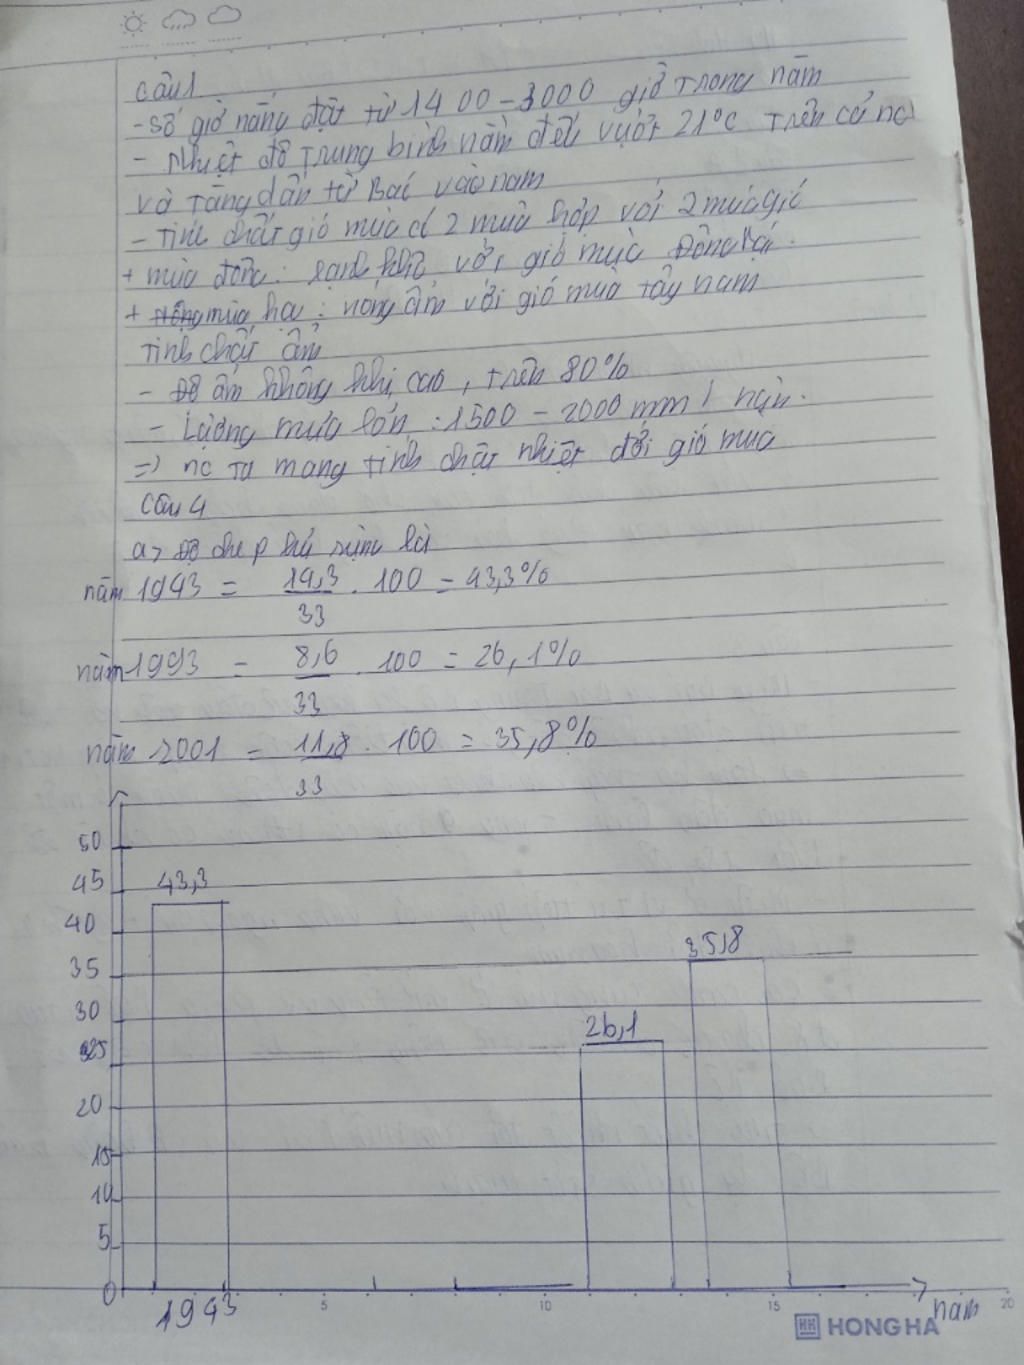 Câu 1
- Số giờ nắng đạt từ 1400 - 3000 giờ trong năm
- Nhiệt độ trung bình năm đều vượt 21°C trên cả nc
và tăng dần từ Bắc vào nam
- Tính chất gió mùa có 2 mùa hợp với 2 mùa gió
+ mùa đông: lạnh khô với gió mùa Đông Bắc.
+ mùa hạ: nóng ẩm với gió mùa tây nam
Tính chất ẩm
- Độ ẩm không khí cao, trên 80%
- Lượng mưa lớn: 1500 - 2000 mm / năm.
=> nc ta mang tính chất nhiệt đới gió mùa
Câu 4
a> Độ che phủ rừng là
năm 1943 = 14,3/33 . 100 = 43,3%
năm 1993 = 8,6/33 . 100 = 26,1%
năm 2001 = 11,8/33 . 100 = 35,8%
50
45
43,3
40
35,8
35
30
26,1
25
20
15
10
5
0
1943
5 10 15 20
năm
HH HONG HA